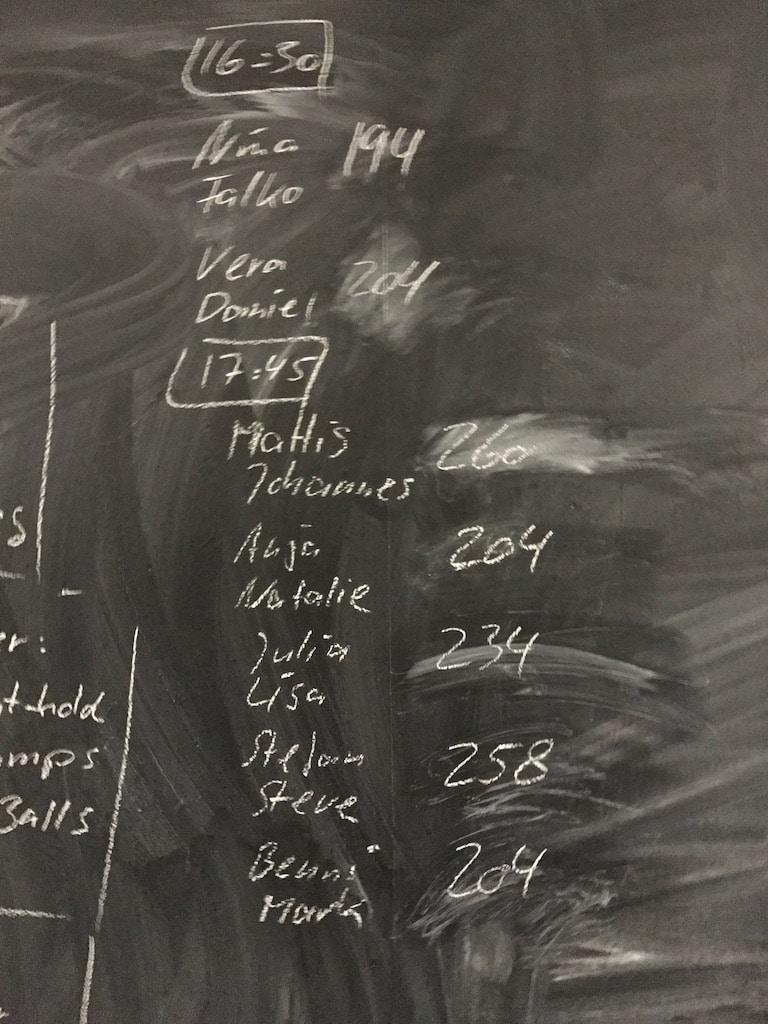 16:30
Nina 194
Falko
Vera 204
Daniel
17:45
Mattis 260
Johannes
Anja 204
Natalie
Julia 234
Lisa
Stefan 258
Steve
Benni 204
er:
t-hold
mps
Balls